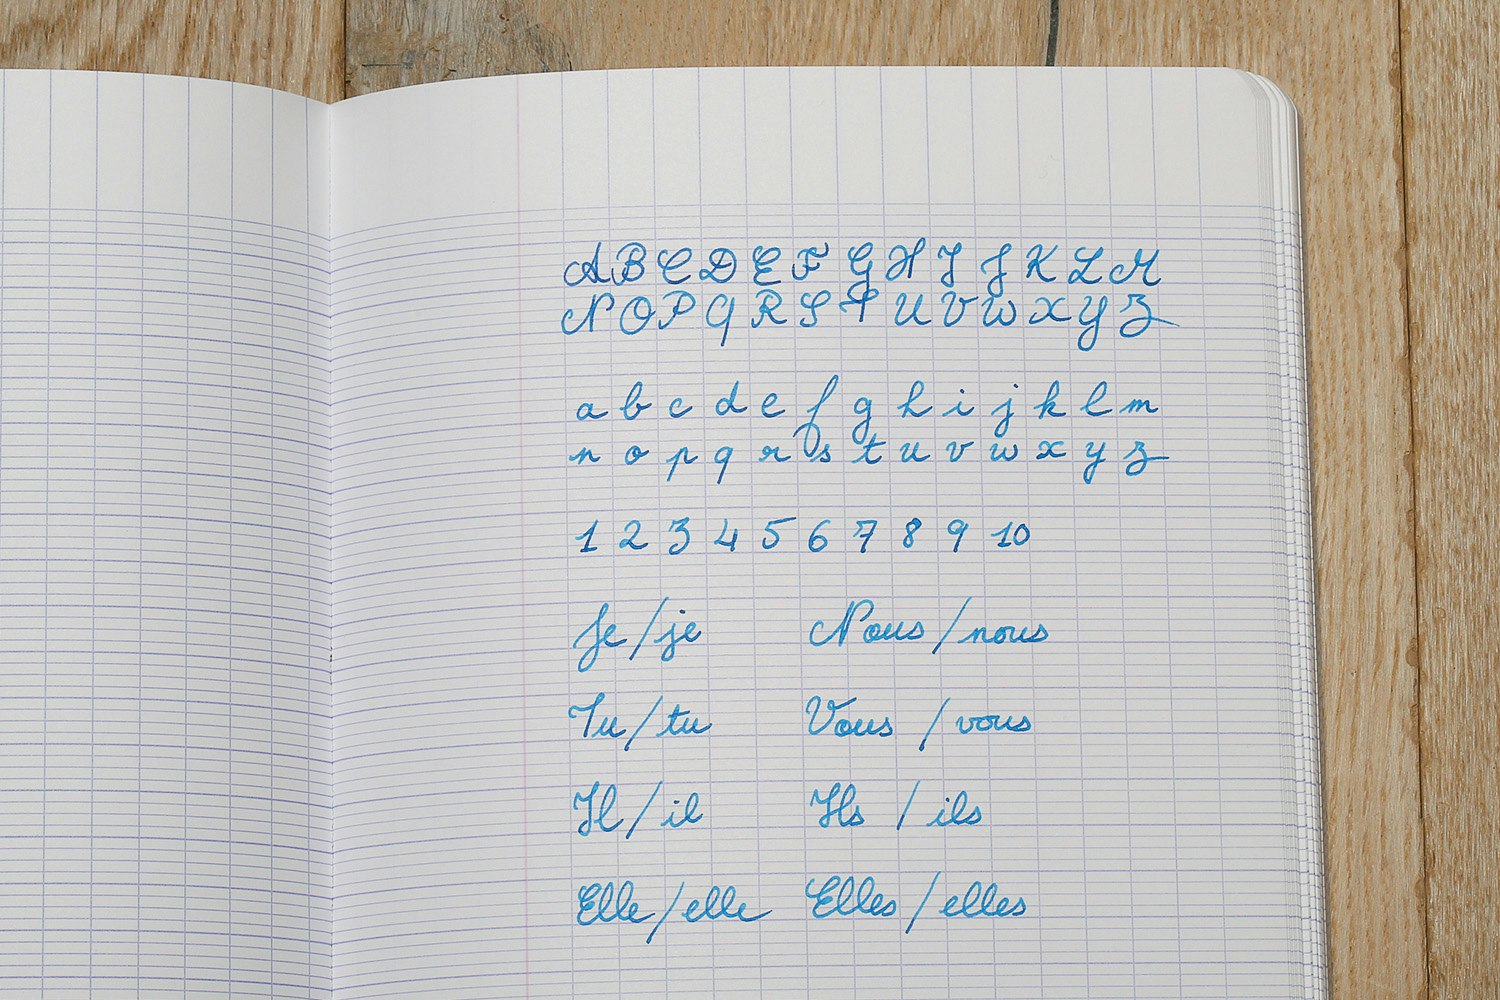 A B C D E F G H I J K L M
N O P Q R S T U V W X Y Z
a b c d e f g h i j k l m
n o p q r s t u v w x y z
1 2 3 4 5 6 7 8 9 10
Je / je Nous / nous
Tu / tu Vous / vous
Il / il Ils / ils
Elle / elle Elles / elles